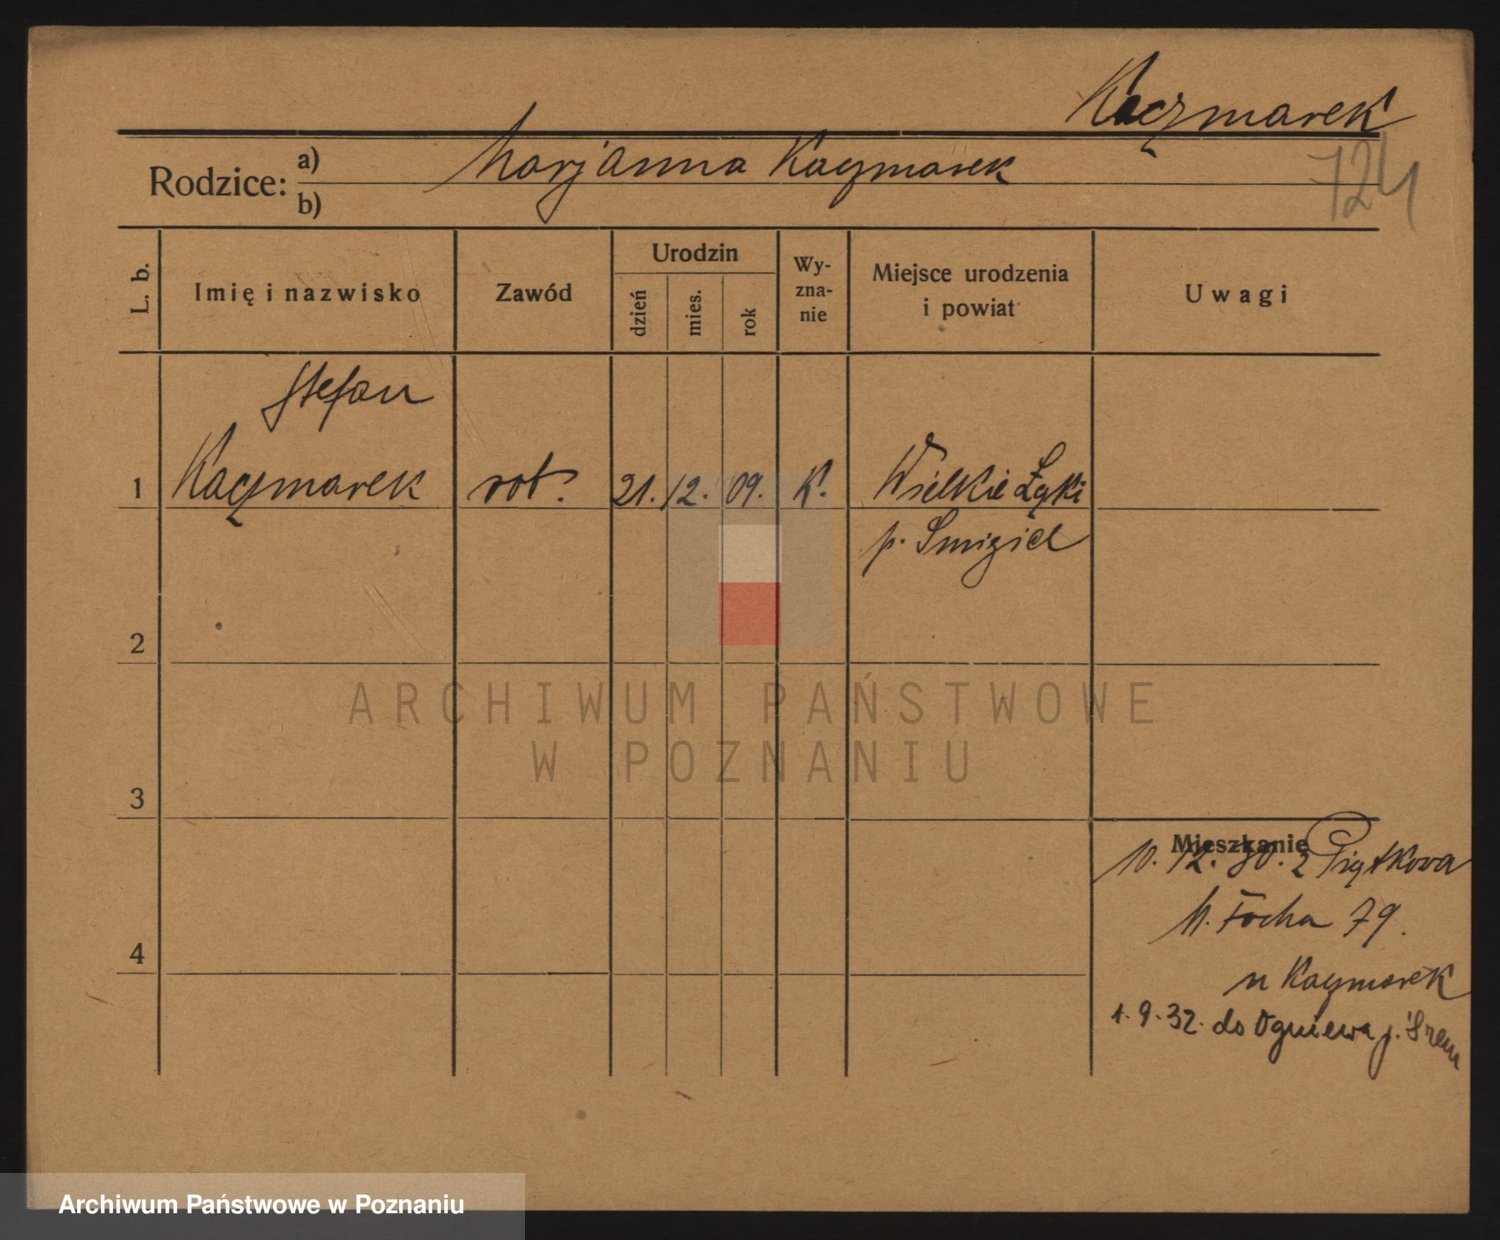 Kaczmarek
724
Rodzice: a) Marjanna Kaczmarek
b)
L. b.
Imię i nazwisko
Zawód
Urodzin
dzień
mies.
rok
Wy-
zna-
nie
Miejsce urodzenia
i powiat
Uwagi
Stefan
1 Kaczmarek rob. 21. 12. 09. K. Wielkie Łąki
p. Smigiel
2
ARCHIWUM PAŃSTWOWE
W POZNANIU
3
Mieszkanie
10. 12. 30. z Piątkowa
M. Focha 79.
u Kaczmarek
4
1. 9. 32. do Ogniewa p. Śrem
Archiwum Państwowe w Poznaniu